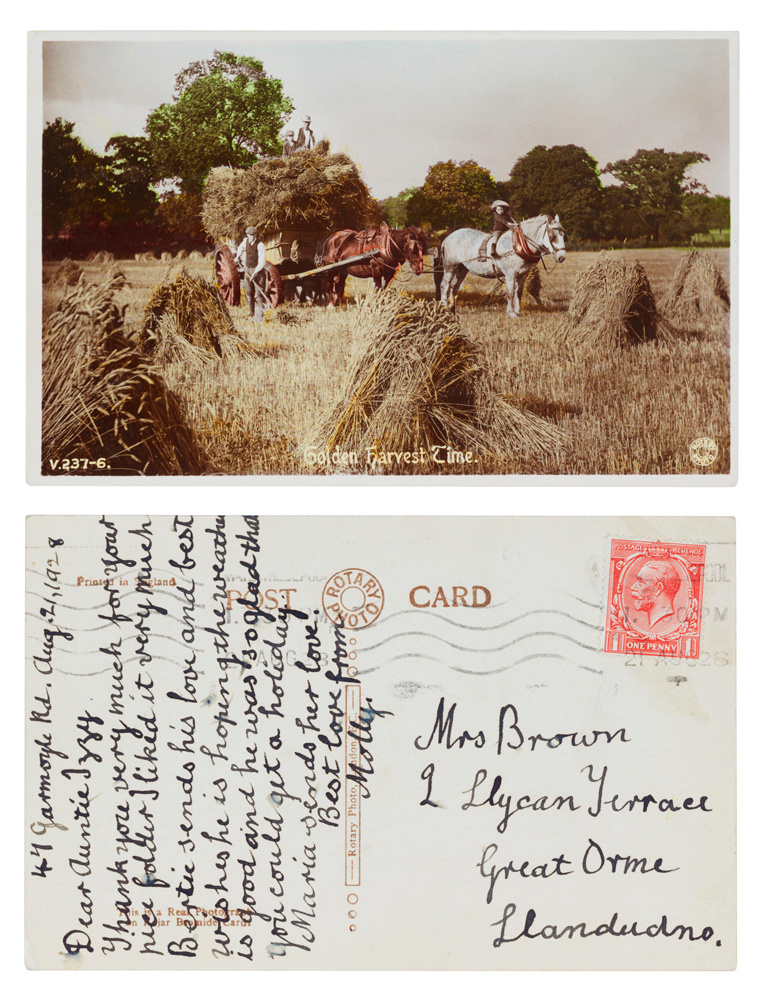 V.237-6.
Golden Harvest Time.
ROTARY PHOTO
Printed in England
POST CARD
ROTARY PHOTO
POSTAGE REVENUE
1 ONE PENNY 1
47 Garmoyle Rd. Aug. 21, 1928
Dear Auntie Izzy
Thank you very much for your
pice folder I liked it very much
Bertie sends his love and best
wishes he is hoping the weather
is good and he was so glad that
you could get a holiday
Maria sends her love.
Best love from
Molly.
Rotary Photo, London
This is a Real Photograph
on Kejar Bromide Card
Mrs Brown
2 Llycan Terrace
Great Orme
Llandudno.